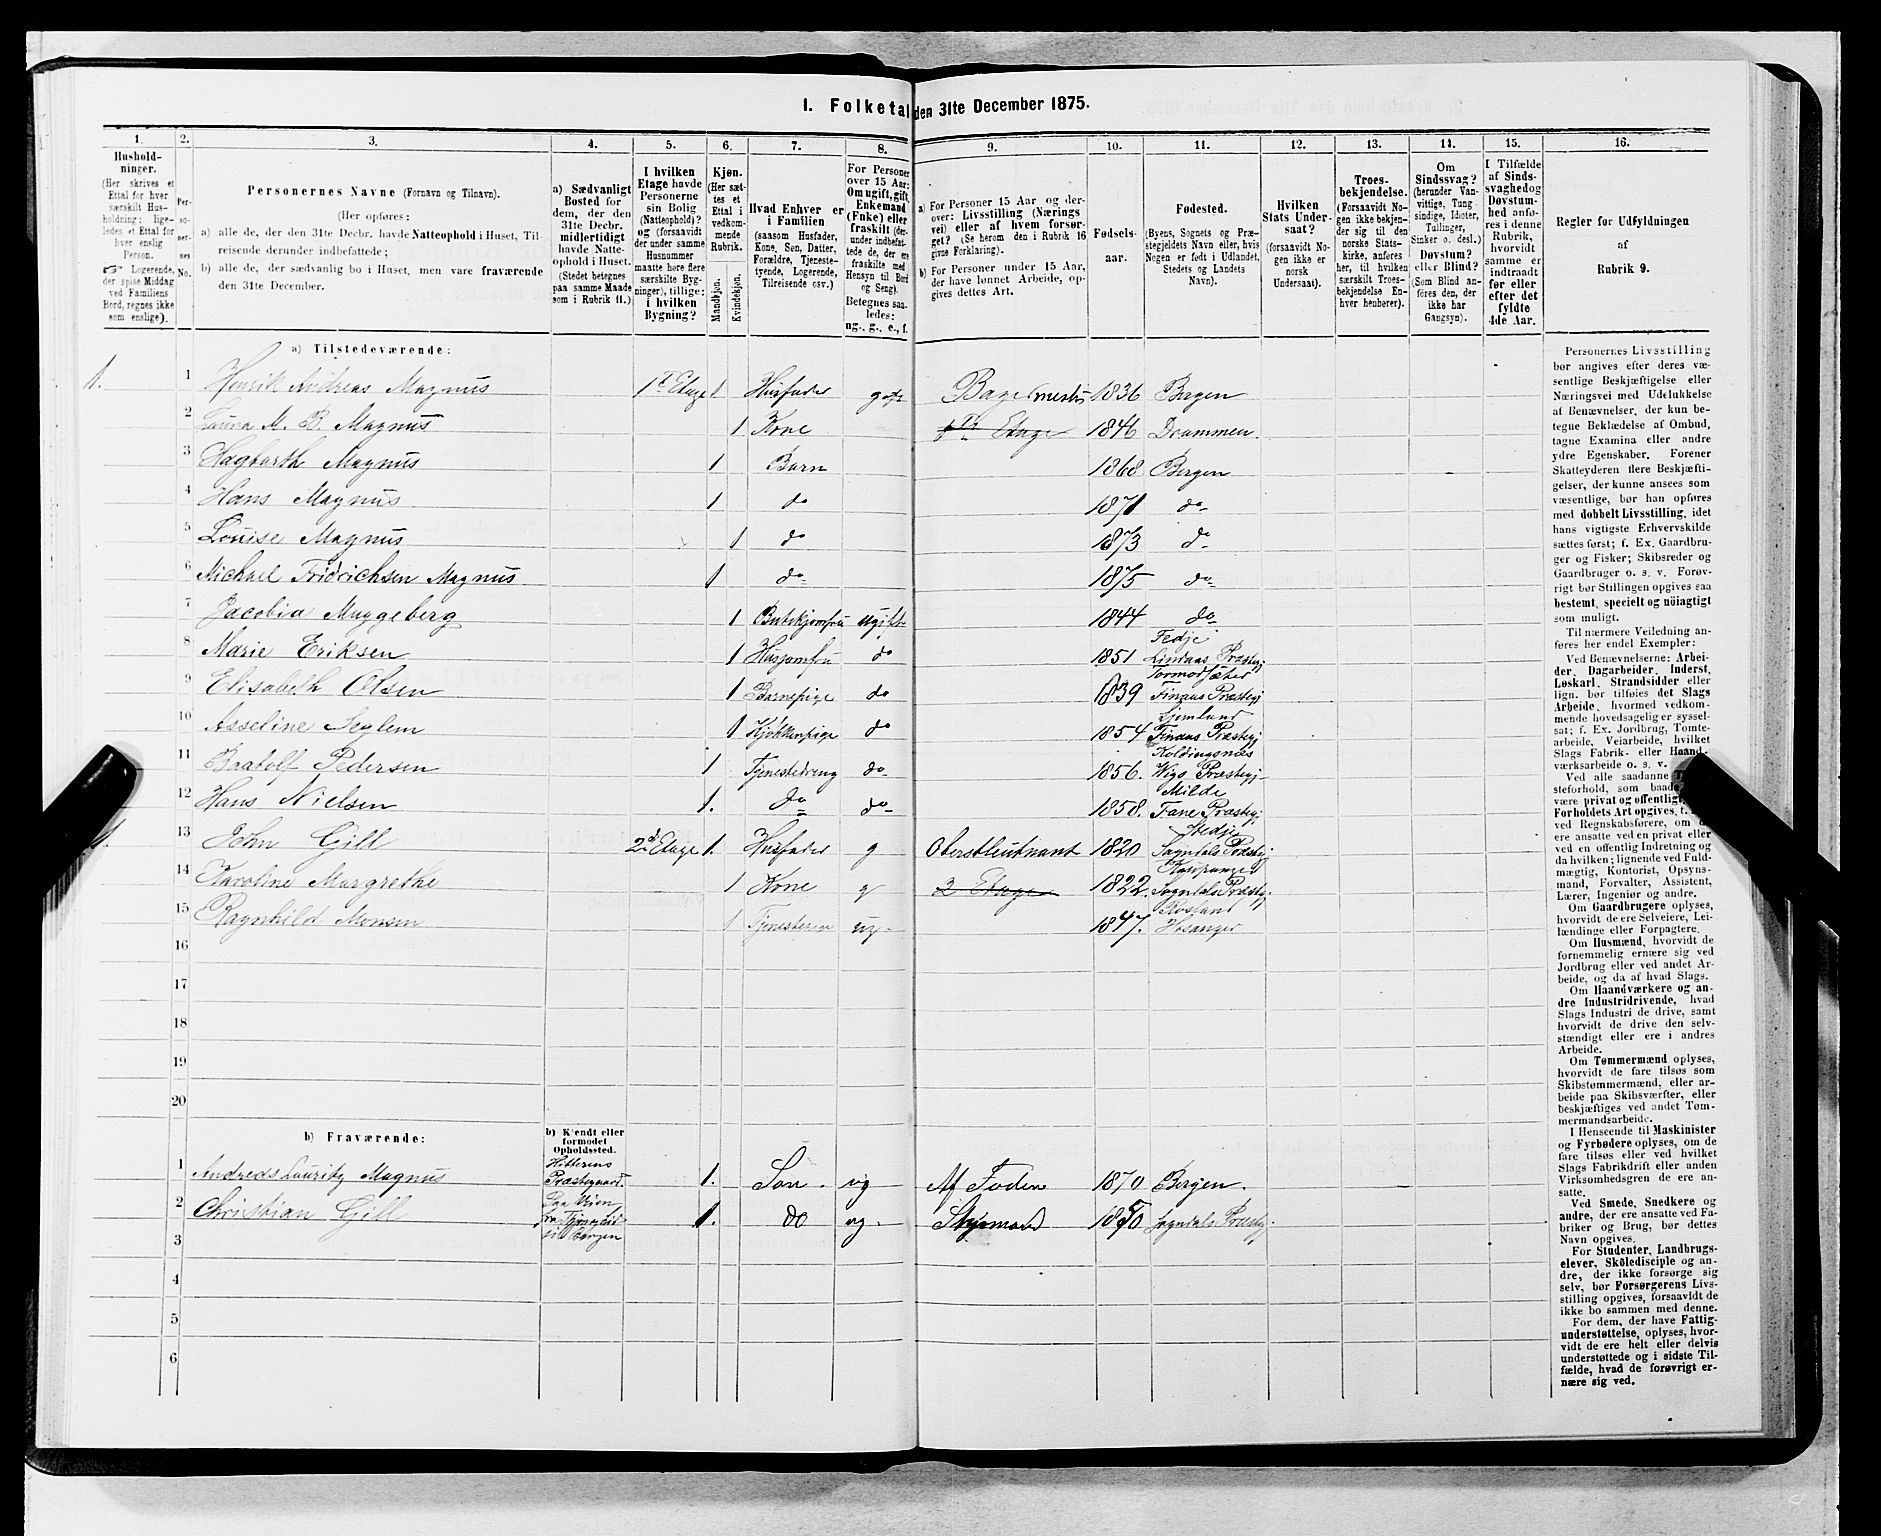 I. Folketal den 31te December 1875.
1. 2. 3. 4. 5. 6. 7. 8. 9. 10. 11. 12. 13. 14. 15. 16.
Husholdninger.
(Her skrives et
Ettal for hver
særskilt Husholdning; ligeledes
et Ettal for
hver enslig
Person.
Logerende,
der spise Middag
ved Familiens
Bord, regnes ikke
som enslige).
Personernes No.
Personernes Navne (Fornavn og Tilnavn).
(Her opføres:
a) alle de, der den 31te Decbr. havde Natteophold i Huset, Tilreisende
derunder indbefattede;
b) alle de, der sædvanlig bo i Huset, men vare fraværende
den 31te December.
a) Sædvanligt
Bosted for
dem, der den
31te Decbr.
midlertidigt
havde Natteophold
i Huset.
(Stedet betegnes
paa samme Maade
som i Rubrik 11.)
I hvilken
Etage havde
Personerne
sin Bolig
(Natteophold)?
og (forsaavidt
der under samme
Husnummer
maatte høre flere
særskilte Bygninger),
tillige:
i hvilken
Bygning?
Kjøn.
(Her sættes
et
Ettal i
vedkommende
Rubrik.
Mandkjøn.
Kvindekjøn.
Hvad Enhver er
i Familien
(saasom Husfader,
Kone, Søn, Datter,
Forældre, Tjenestetyende,
Logerende,
Tilreisende osv.)
For Personer
over 15 Aar:
Om ugift, gift,
Enkemand
(Enke) eller
fraskilt (derunder
indbefattede
de, der ere
fraskilte med
Hensyn til Bord
og Seng).
Betegnes saaledes:
ug., g., e., f.
a) For Personer 15 Aar og derover:
Livsstilling (Næringsvei)
eller af hvem forsørget?
(Se herom den i Rubrik 16
givne Forklaring).
b) For Personer under 15 Aar,
der have lønnet Arbeide, opgives
dettes Art.
Fødselsaar.
Fødested.
(Byens, Sognets og Præstegjeldets
Navn eller, hvis
Nogen er født i Udlandet,
Stedets og Landets
Navn).
Hvilken
Stats Undersaat?
(forsaavidt Nogen
ikke er
norsk
Undersaat).
Troesbekjendelse.
(Forsaavidt Nogen
ikke bekjender
sig til den
norske Statskirke,
anføres
her, til hvilken
særskilt Troesbekjendelse
Enhver
henhører).
Om
Sindssvag?
(herunder Vanvittige,
Tungsindige,
Idioter,
Tullinger,
Sinker o. desl.)
Døvstum?
eller Blind?
(Som Blind anføres
den, der
ikke har
Gangsyn).
I Tilfælde
af Sindssvaghed
og
Døvstumhed
anføres
i denne
Rubrik,
hvorvidt
samme er
indtraadt
før eller
efter det
fyldte
4de Aar.
Regler for Udfyldningen
af
Rubrik 9.
a) Tilstedeværende:
1. 1 Henrik Andreas Magnus 1ste Etage 1 Husfader gift Bagermester 1836 Bergen
2 Laura M. B. Magnus 1 Kone Etage 1846 Drammen.
3 Hagbarth Magnus 1 Barn 1868 Bergen
4 Hans Magnus 1 do 1871 do
5 Louise Magnus 1 do 1873 do
6 Michael Fridrichsen Magnus 1 do 1875 do
7 Jacobia Muggeberg 1 Butikjomfru ugift 1844 do
8 Marie Eriksen 1 Husjomfru do 1851 Fedje Lindaas Præstegj
9 Elisabeth Olsen 1 Barnepige do 1839 Finaas Præstegj
10 Asseline Seglem 1 Kjøkkenpige do 1854 Finaas Præstegj
11 Baatolf Pedersen 1 Tjenestedreng do 1856. Præstegj
12 Hans Nielsen 1. do do 1858. Milde Fane Præstegj
13 John Gill 2d Etage 1. Husfader g Oberstleutnant 1820 Stedje Sogndals Præstegj
14 Karoline Margrethe 1 Kone g 2 Etage 1822. Kaupanger Sogndals Præstegj
15 Ragnhild Monsen 1 Tjenesterinde ug. 1847. Rosland Hosanger
16
17
18
19
20
b) Fraværende:
b) Kjendt eller
formodet
Opholdssted.
1 Andreas Lauritz Magnus Hitterens Præstegaard 1. Søn ug Af Faderen 1870 Bergen.
2 Christian Gill Paa Reisen fra til Bergen 1. do ug. Styrmand 1850 Sogndals Præstegj.
3
4
5
6
Personernes Livsstilling
bør angives efter deres væsentlige
Beskjæftigelse eller
Næringsvei med Udelukkelse
af Benævnelser, der kun betegne
Beklædelse af Ombud,
tagne Examina eller andre
ydre Egenskaber. Forener
Skatteyderen flere Beskjæftigelser,
der kunne ansees som
væsentlige, bør han opføres
med dobbelt Livsstilling, idet
hans vigtigste Erhvervskilde
sættes først; f. Ex. Gaardbruger
og Fisker; Skibsreder og
Gaardbruger o. s. v. Forøvrigt
bør Stillingen opgives saa
bestemt, specielt og nöiagtigt
som muligt.
Til nærmere Veiledning anføres
her endel Exempler:
Ved Benævnelserne: Arbeider,
Dagarbeider, Inderst,
Løskarl, Strandsidder eller
lign. bør tilføies det Slags
Arbeide, hvormed vedkommende
hovedsagelig er sysselsat;
f. Ex. Jordbrug, Tomtearbeide,
Veiarbeide, hvilket
Slags Fabrik- eller Haandværksarbeide
o. s. v.
Ved alle saadanne
steforhold, som baade
være privat og offentligt,
Forholdets Art opgives, t.
ved Regnskabsførere, om de
ere ansatte ved en privat eller
ved en offentlig Indretning og
da hvilken; lignende ved Fuldmægtig,
Kontorist, Opsynsmand,
Forvalter, Assistent,
Lærer, Ingeniør og andre.
Om Gaardbrugere oplyses,
hvorvidt de ere Selveiere, Leilændinge
eller Forpagtere.
Om Husmænd, hvorvidt de
fornemmelig ernære sig ved
Jordbrug eller ved andet Arbeide,
og da af hvad Slags.
Om Haandværkere og andre
Industridrivende, hvad
Slags Industri de drive, samt
hvorvidt de drive den selvstændigt
eller ere i andres
Arbeide.
Om Tømmermænd oplyses,
hvorvidt de fare tilsøs som
Skibstømmermænd, eller arbeide
paa Skibsværfter, eller
beskjæftiges ved andet Tømmermandsarbeide.
I Henseende til Maskinister
og Fyrbødere oplyses, om de
fare tilsøs eller ved hvilket
Slags Fabrikdrift eller anden
Virksomhedsgren de ere ansatte.
Ved Smede, Snedkere og
andre, der ere ansatte ved Fabriker
og Brug, bør dettes
Navn opgives.
For Studenter, Landbrugselever,
Skôledisciple og andre,
der ikke forsørge sig
selv, bør Forsørgerens Livsstilling
opgives, forsaavidt de
ikke bo sammen med denne.
For dem, der have Fattigunderstøttelse,
oplyses, hvorvidt
de ere helt eller delvis
understøttede og i sidste Tilfælde,
hvad de forøvrigt ernære
sig ved.